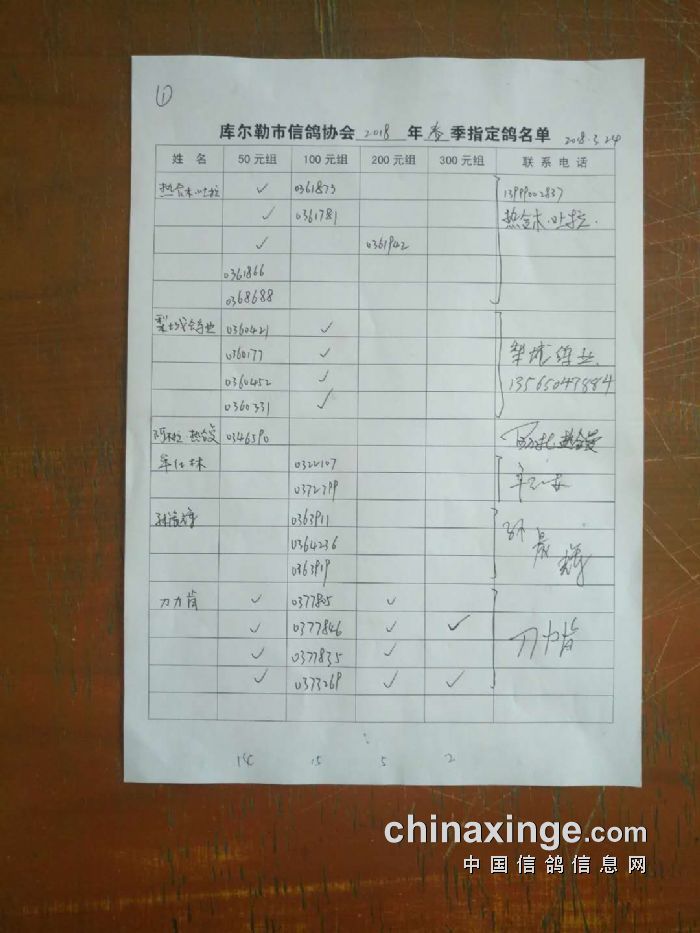 ①
库尔勒市信鸽协会 2018 年 春 季指定鸽名单 2018.3.24
姓 名 50元组 100元组 200元组 300元组 联系电话
热合木·吐拉 ✓ 0361873 13999002837
✓ 0361781 热合木·吐拉.
✓ 0361942
0361866
0368688
梨城鸽业 0360421 ✓
0360177 ✓ 梨城鸽业
0360452 ✓ 13565047884
0360331 ✓
热合曼 0346590 热合曼
牟仕林 0322107
0372799
0363911
0364236
0363919
刀力肯 ✓ 0377805 ✓
✓ 0377846 ✓ ✓ 刀力肯
✓ 0377835 ✓
✓ 0373269 ✓ ✓
15 5 2
chinaxinge.com
中国信鸽信息网